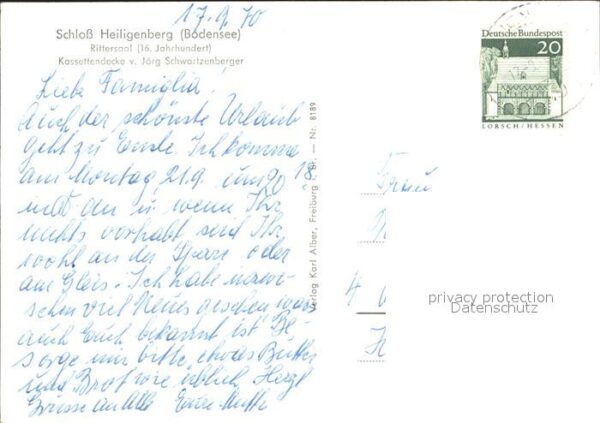 17.9.70
Schloß Heiligenberg (Bodensee)
Rittersaal (16. Jahrhundert)
Kassettendecke v. Jörg Schwartzenberger
Liebe Famiglia!
Auch der schönste Urlaub
geht zu Ende. Ich komme
am Montag 21.9. um 20 18
an u. wenn Ihr
nichts vorhabt seid Ihr
wohl an der Sperre oder
am Gleis. Ich habe inzwi-
schen viel Neues gesehen was
auch Euch bekannt ist. Be-
sorge mir bitte etwas Butter
und Brot wie üblich. Herzl
Grüsse an Alle Eure Mutti
Verlag Karl Alber, Freiburg i. Br. — Nr. 8189
Deutsche Bundespost
20
LORSCH/HESSEN
Frau
4
privacy protection
Datenschutz